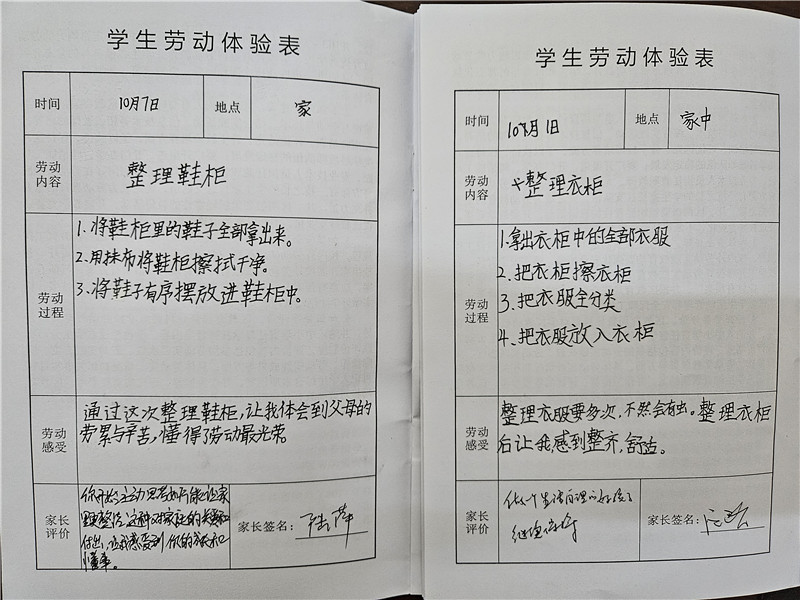 学生劳动体验表
时间 10月7日 地点 家
劳动内容 整理鞋柜
劳动过程
1.将鞋柜里的鞋子全部拿出来。
2.用抹布将鞋柜擦拭干净。
3.将鞋子有序摆放进鞋柜中。
劳动感受
通过这次整理鞋柜,让我体会到父母的
劳累与辛苦,懂得了劳动最光荣。
家长评价
你开始主动思考如何能让家
更整洁,这种对家庭的关爱和
付出,让我感受到你的成长和
懂事。
家长签名:
学生劳动体验表
时间 10月1日 地点 家中
劳动内容 整理衣柜
劳动过程
1.拿出衣柜中的全部衣服
2.把衣柜擦衣柜
3.把衣服全分类
4.把衣服放入衣柜
劳动感受
整理衣服要多次,不然会有虫。整理衣柜
后让我感到整齐,舒适。
家长评价
做个生活自理的好孩子
继续保持
家长签名: